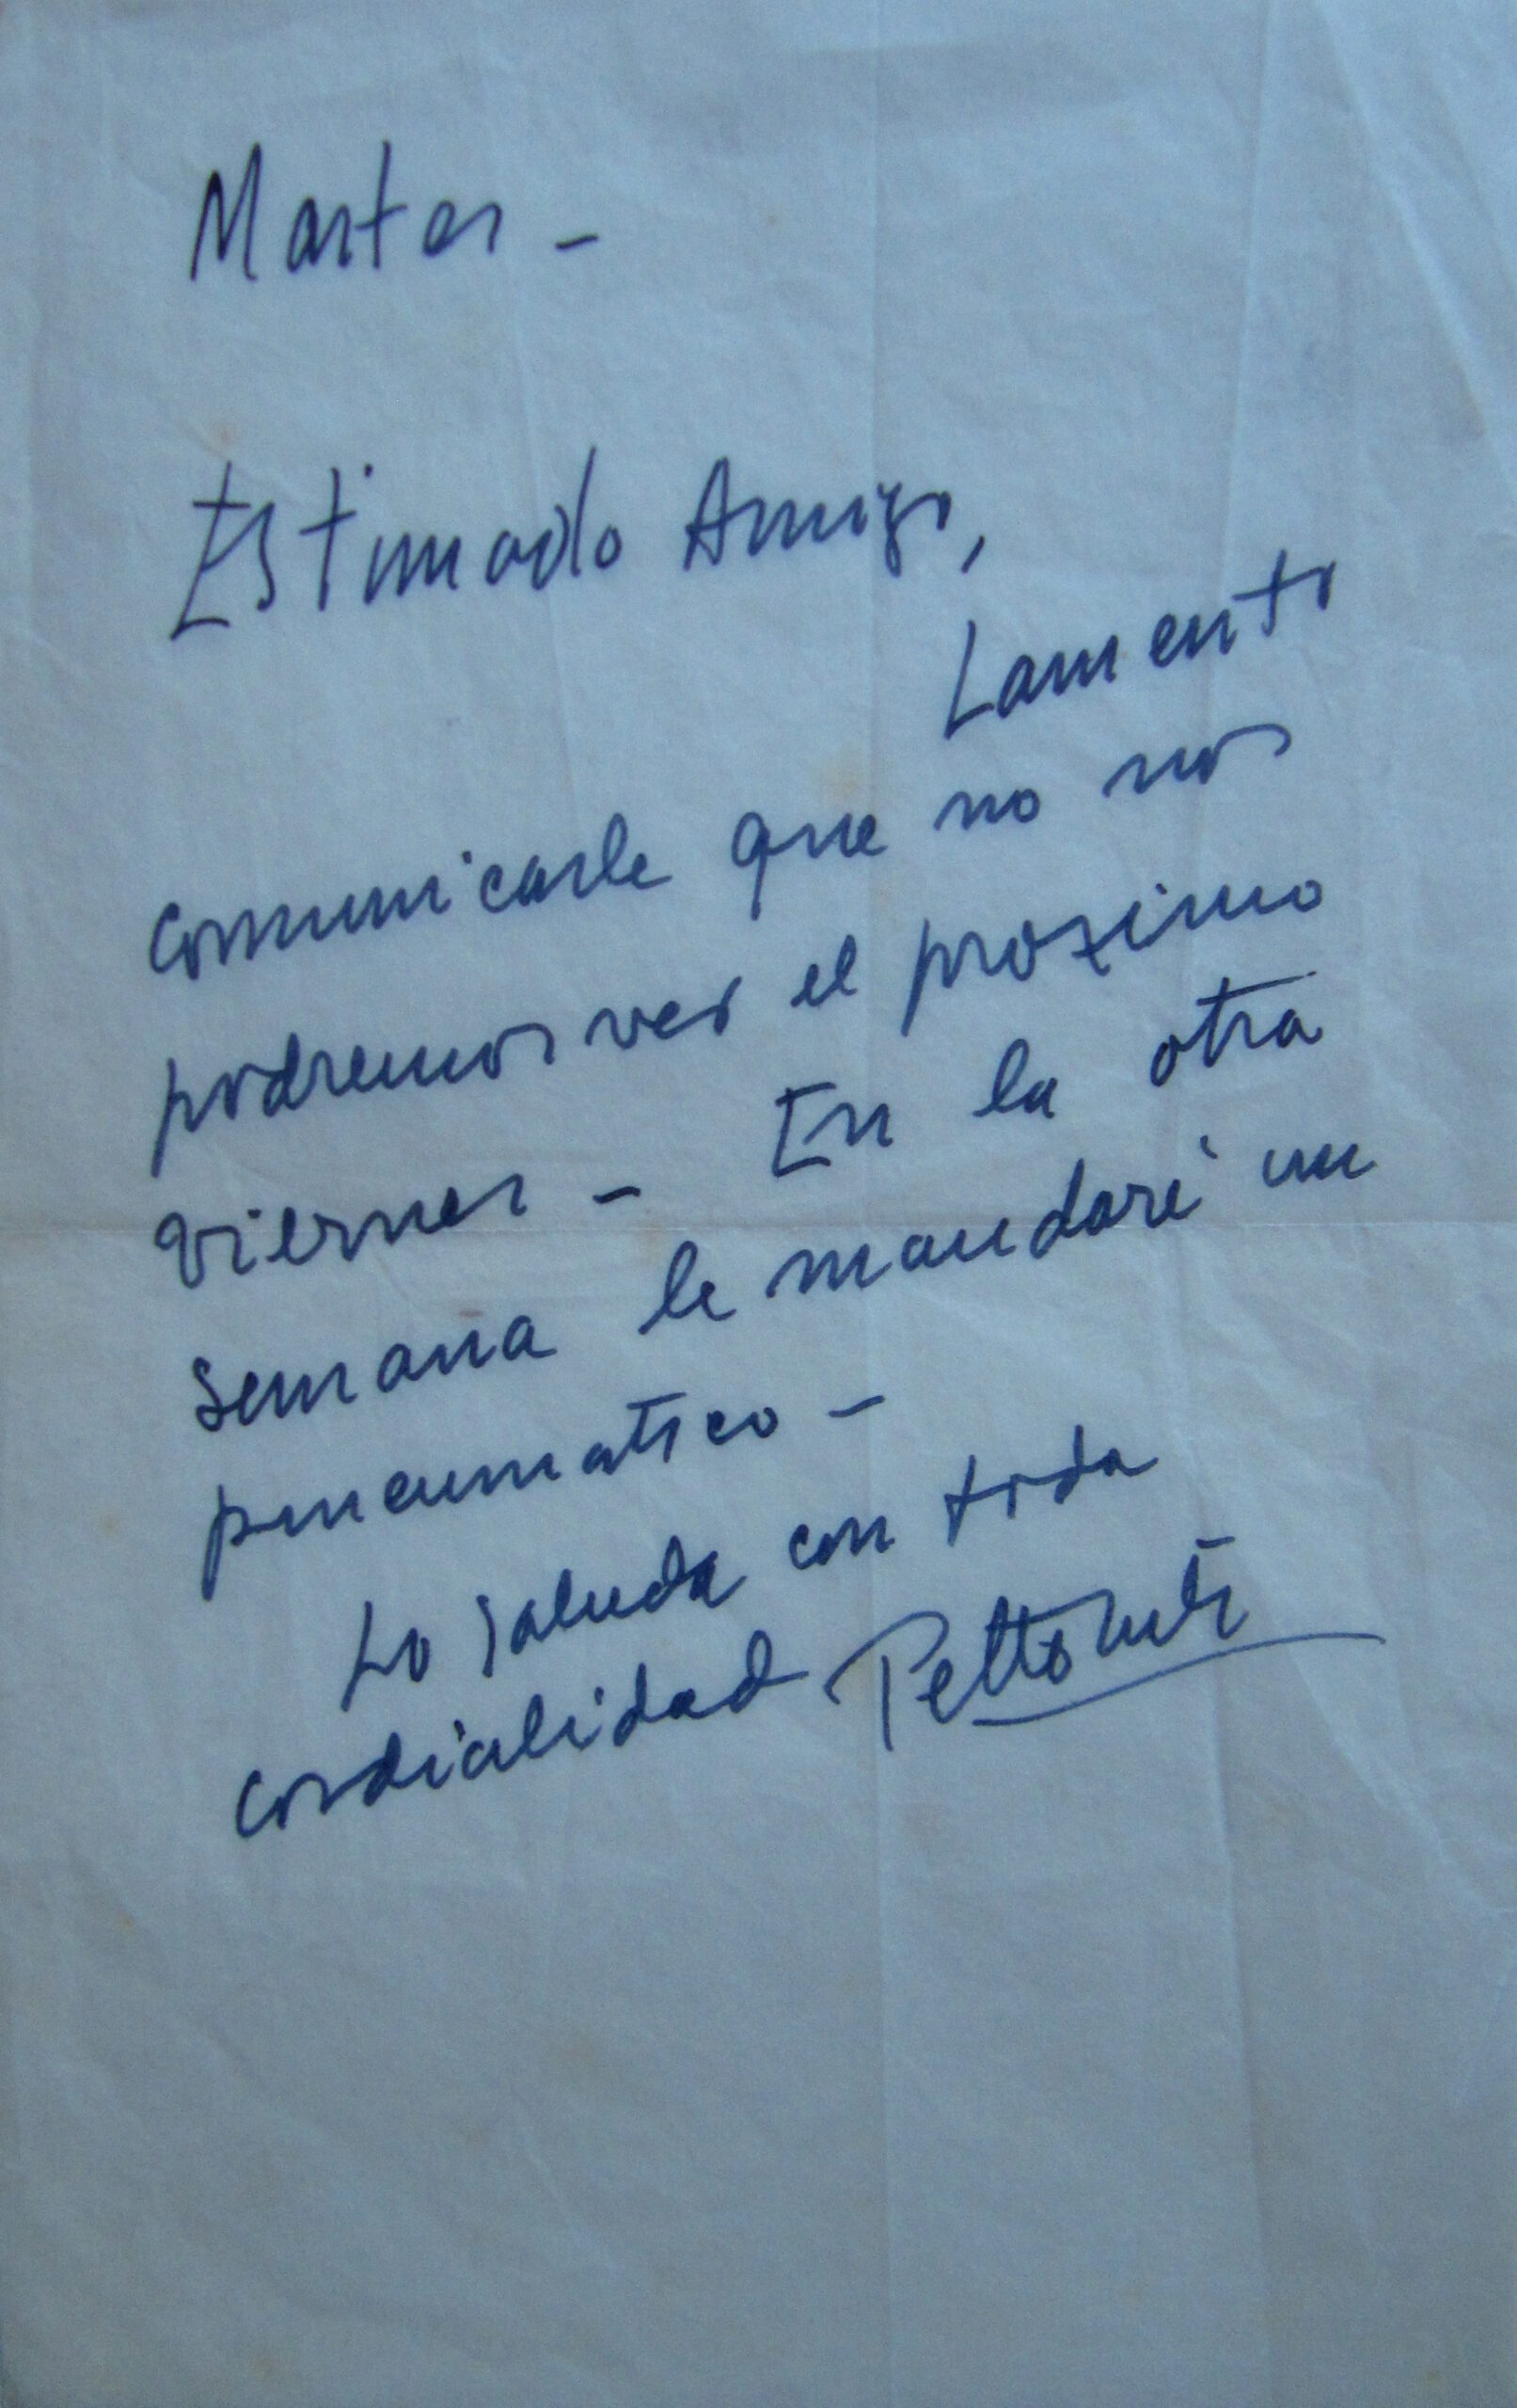 Martes -
Estimado Amigo,
Lamento
comunicarle que no nos
podremos ver el proximo
viernes - En la otra
semana le mandaré un
pneumatico -
Lo saluda con toda
cordialidad Pettoruti